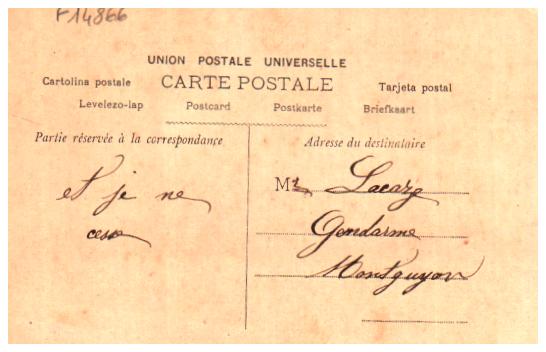 F14866
UNION POSTALE UNIVERSELLE
Cartolina postale CARTE POSTALE Tarjeta postal
Levelezo-lap Postcard Postkarte Briefkaart
Partie réservée à la correspondance
Adresse du destinataire
et je ne
cesse
Mr Lacaze
Gendarme
Montguyon